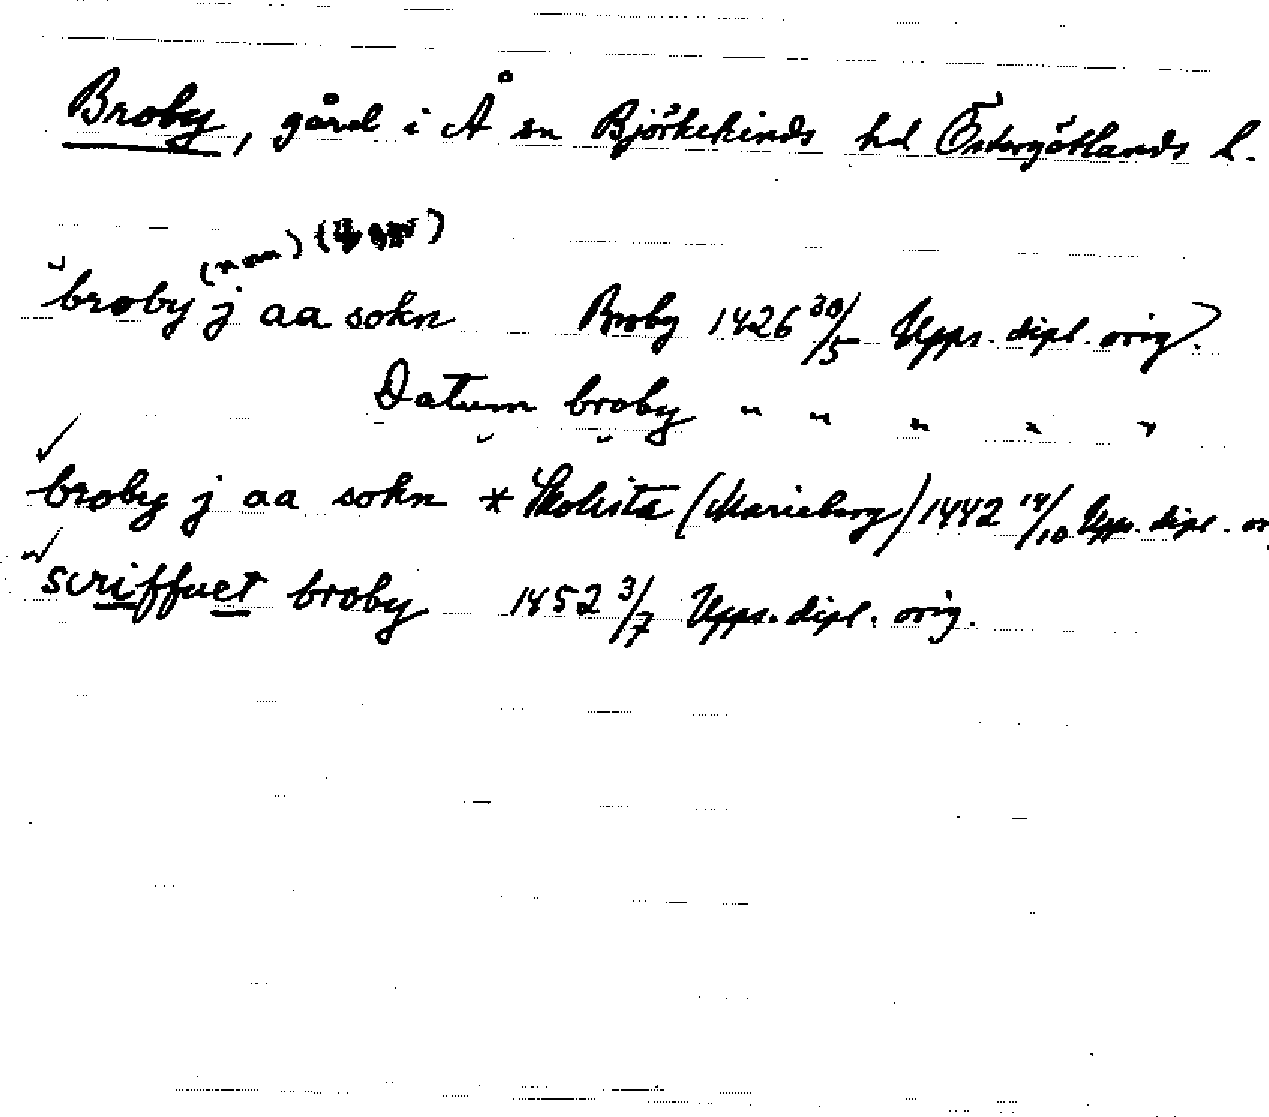 Broby, gård i Å sn Björkekinds hd Östergötlands l.
broby j aa sokn Broby 1426 30/5 Upps. dipl. orig.
Datum broby " " " " "
broby j aa sokn * Skolista (Marieberg) 1442 14/10 Upps. dipl. or
scriffuet broby 1452 3/7 Upps. dipl. orig.